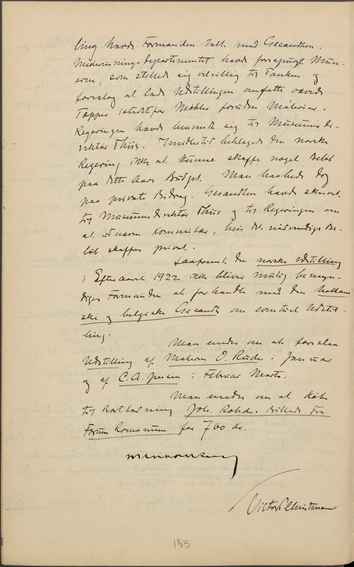 ling havde Formanden talt med Gesandten.
Undervisnings Departementet havde forespurgt Muse-
erne, som stillede sig velvillig til Tanken og
foreslog at lade Udstillingen omfatte ogsaa
Tapper samt Møbler foruden Malerier.
Regeringen havde henvendt sig til Museums di-
rektør Thiis. Imidlertid beklagede den norske
Regering ikke at kunne skaffe noget Beløb
paa dette Aars Budget. Man haabede dog
paa private Bidrag. Gesandten havde skrevet
til Museumsdirektør Thiis og til Regeringen om
at kunne hvis det nødvendige Be-
løb skaffes privat.
Saafremt den norske Udstilling
i Efteraaret 1922 ikke bliver mulig bemyn-
diges Formanden at forhandle med den hollan-
ske og belgiske Gesandt om eventuel Udstil-
ling.
Man enedes om at foreslaa
Udstilling af Maleren O. Rude i Januar
og af C.A. Jensen i Februar Marts.
Man enedes om at købe
til Bortlodning Joh. Rohde. Billede fra
Forum Romanum for 700 kr.
Victor Christensen
185